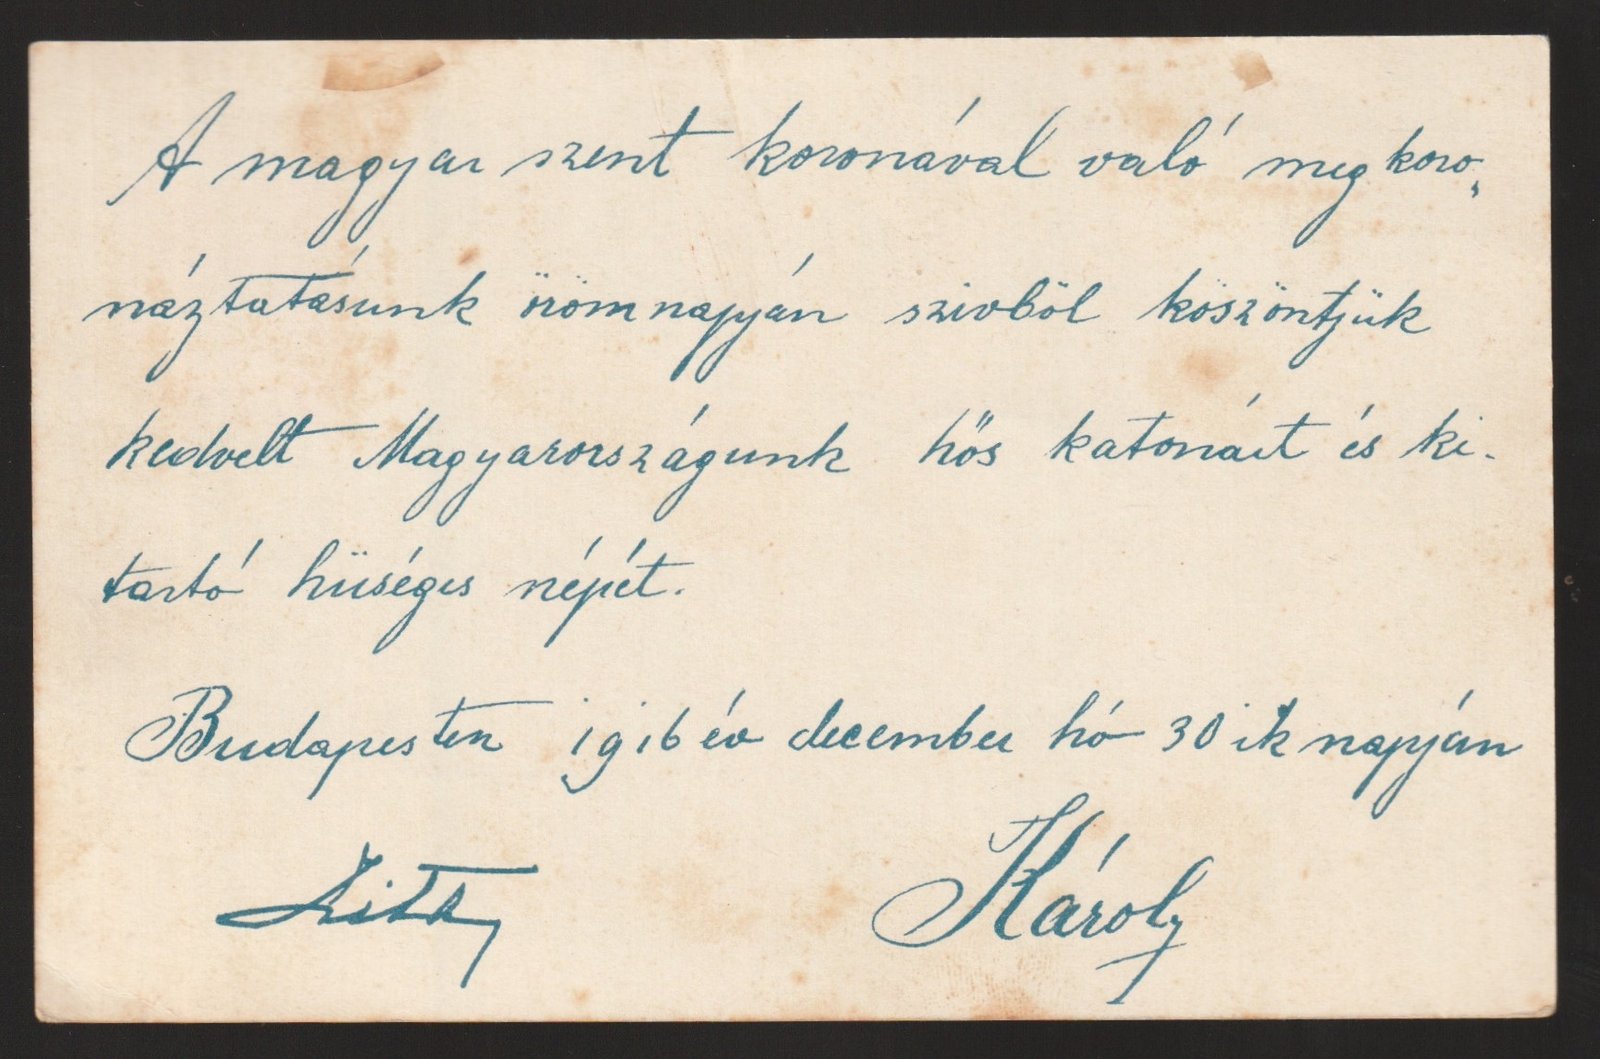 A magyar szent koronával való megkoro„
náztatásunk örömnapján szivböl köszöntjük
kedvelt Magyarországunk hős katonáit és ki-
tartó hüséges népét.
Budapesten 1916 év december hó 30 ik napján
Zita Károly